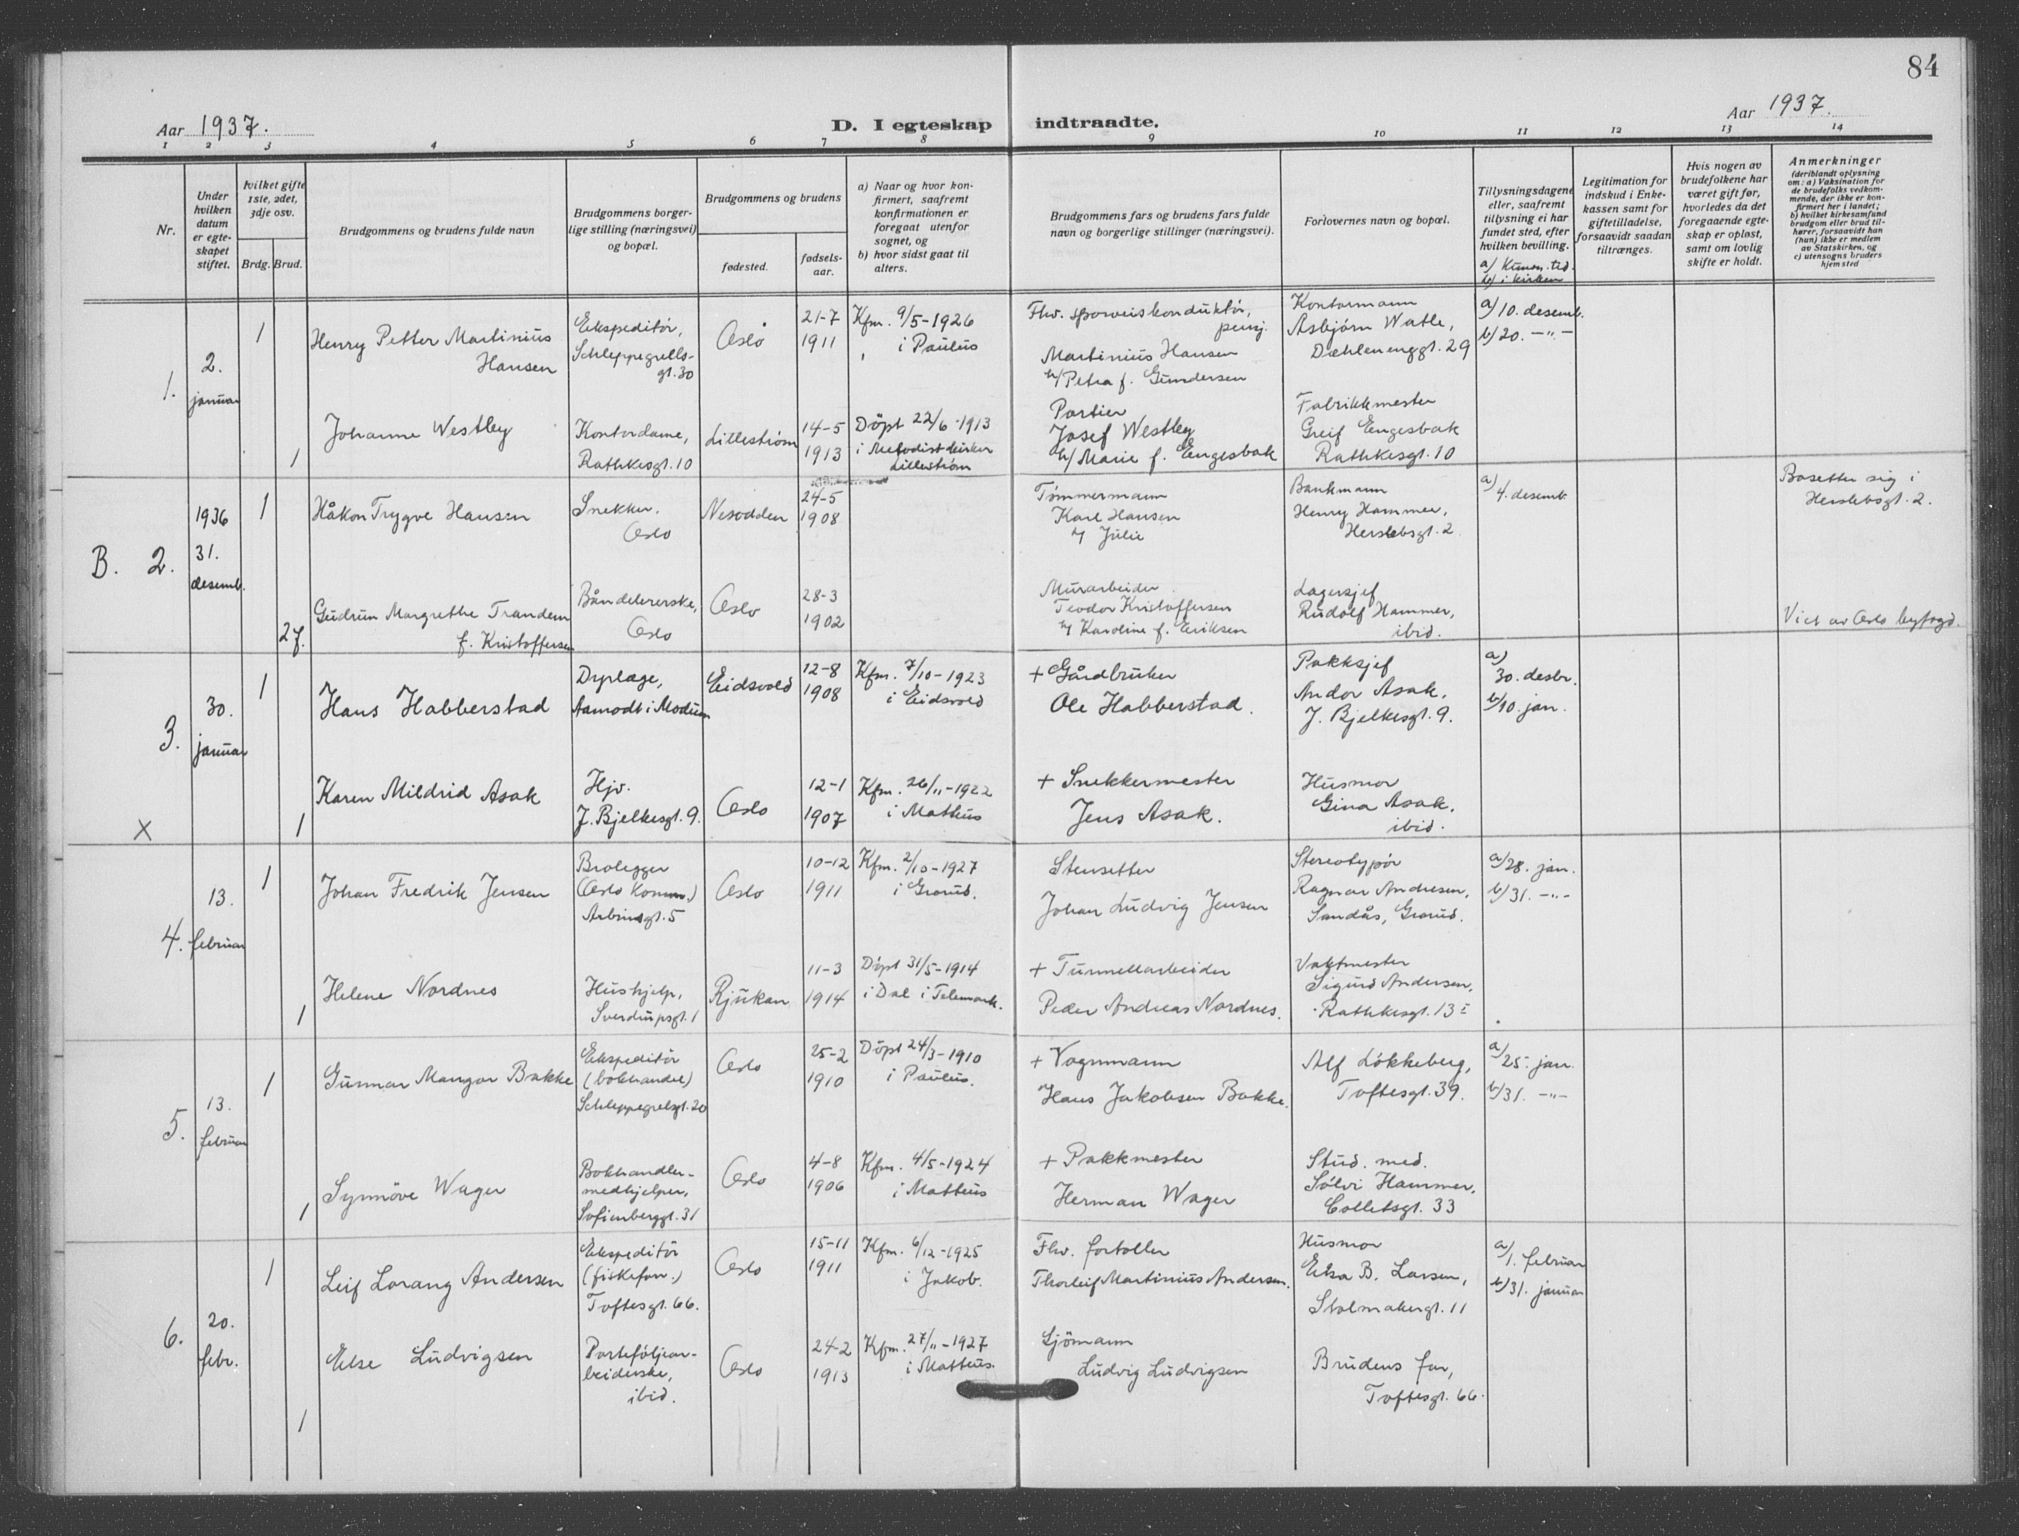 84
Aar 1937.
D. I egteskap indtraadte.
Aar 1937.
1 2 3 4 5 6 7 8 9 10 11 12 13 14
Nr.
Under
hvilken
datum
er egte-
skapet
stiftet.
hvilket gifte
1ste, 2det,
3dje osv.
Brdg. Brud.
Brudgommens og brudens fulde navn
Brudgommens borger-
lige stilling (næringsvei)
og bopæl.
Brudgommens og brudens
fødested.
fødsels-
aar.
a) Naar og hvor kon-
firmert, saafremt
konfirmationen er
foregaat utenfor
sognet, og
b) hvor sidst gaat til
alters.
Brudgommens fars og brudens fars fulde
navn og borgerlige stillinger (næringsvei).
Forlovernes navn og bopæl.
Tillysningsdagene
eller, saafremt
tillysning ei har
fundet sted, efter
hvilken bevilling.
a) Kunn. tid.
b) i kirken
Legitimation for
indskud i Enke-
kassen samt for
giftetilladelse,
forsaavidt saadan
tiltrænges.
Hvis nogen av
brudefolkene har
været gift før,
hvorledes da det
foregaaende egte-
skap er opløst,
samt om lovlig
skifte er holdt.
Anmerkninger
(deriblandt oplysning
om: a) Vaksination for
de brudefolks vedkom-
mende, der ikke er kon-
firmert her i landet;
b) hvilket kirkesamfund
brudgom eller brud til-
hører, forsaavidt han
(hun) ikke er medlem
av Statskirken, og
c) utensogns bruders
hjemsted
1.
2.
januar
1
Henry Petter Martinius
Hansen
Ekspeditör,
Schleppegrells-
gt. 30
Oslo
21-7
1911
Kfm. 9/5-1926
i Paulus
Fhv. sporveiskonduktör,
pensj.
Martinius Hansen
h/ Petra f. Gundersen
Kontormann
Asbjörn Watle,
Dæhlenenggt. 29
a) 10. desemb.
b) 20. -"-
1
Johanne Westby
Kontordame,
Rathkesgt. 10
Lilleström
14-5
1913
Döpt 22/6-1913
i Metodistkirken
Lilleström
Portier
Josef Westby
h/ Marie f. Engesbak
Fabrikkmester
Greif Engesbak
Rathkesgt. 10
B. 2.
1936
31.
desemb.
1
Håkon Trygve Hansen
Snekker,
Oslo
Nesodden
24-5
1908
Tömmermann
Karl Hansen
h/ Julie
Bankmann
Henry Hammer,
Herslebsgt. 2
a) 4. desemb.
Bosetter sig i
Herslebsgt. 2.
27.
Gudrun Margrethe Trandem
f. Kristoffersen
Båndvevererske,
Oslo
Oslo
28-3
1902
Murarbeider
Teodor Kristoffersen
h/ Karoline f. Eriksen
Lagersjef
Rudolf Hammer,
ibid.
Viet av Oslo byfogd.
3.
30.
januar
1
Hans Habberstad
Dyrlæge,
Aamodt i Modum
Eidsvold
12-8
1908
Kfm. 7/10-1923
i Eidsvold
+ Gårdbruker
Ole Habberstad.
Pakksjef
Andor Asak,
J. Bjelkesgt. 9.
a) 30. desbr.
b) 10. jan.
X
1
Karen Mildrid Asak
Hjv.
J. Bjelkesgt. 9.
Oslo
12-1
1907
Kfm. 26/11-1922
i Matteus
+ Snekkermester
Jens Asak.
Husmor
Gina Asak,
ibid.
4.
13.
februar
1
Johan Fredrik Jensen
Brolegger
(Oslo Komm.)
Arbinsgt. 5
Oslo
10-12
1911
Kfm. 2/10-1927
i Grorud.
Stensetter
Johan Ludvig Jensen
Stereotypör
Ragnar Andresen,
Sandås, Grorud.
a) 28. jan.
b) 31. -"-
1
Helene Nordnes
Hushjelp,
Sverdrupsgt. 1
Rjukan
11-3
1914
Döpt 31/5-1914
i Dal i Telemark.
+ Tunnellarbeider
Peder Andreas Nordnes.
Vaktmester
Sigurd Andersen,
Rathkesgt. 13 I
5.
13.
februar
1
Gunnar Mangor Bakke
Ekspeditör
(bokhandel)
Schleppegrelsgt. 20
Oslo
25-2
1910
Döpt 24/3-1910
i Paulus.
+ Vognmann
Hans Jakobsen Bakke.
Alf Lökkeberg,
Toftesgt. 39.
a) 25. jan.
b) 31. -"-
1
Synnöve Wager
Bokhandler-
medhjelper,
Sofienberggt. 31
Oslo
4-8
1906
Kfm. 4/5-1924
i Matteus
+ Pakkmester
Herman Wager
Stud. med.
Sölvi Hammer,
Colletsgt. 33
6.
20.
febr.
1
Leif Lorang Andersen
Ekspeditör
(fiskeforr.)
Toftesgt. 66.
Oslo
15-11
1911
Kfm. 6/12-1925
i Jakob.
Fhv. fortoller
Thorleif Martinius Andersen.
Husmor
Elsa B. Larsen,
Stolmakergt. 11
a) 1. februar
b) 31. januar
1
Else Ludvigsen
Porteföljear-
beiderske,
ibid.
Oslo
24-2
1913
Kfm. 27/11-1927
i Matteus.
Sjömann
Ludvig Ludvigsen
Brudens far,
Toftesgt. 66.